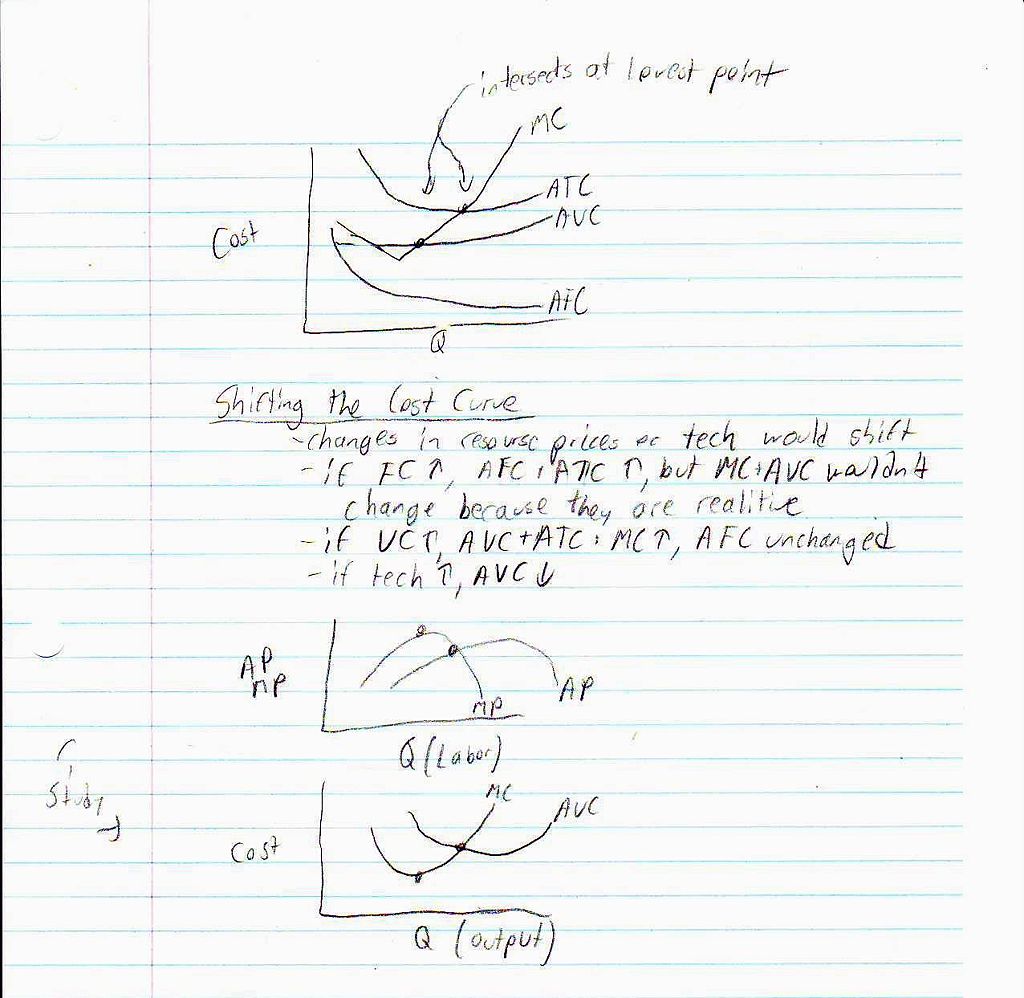 intersects at lowest point
MC
ATC
AVC
Cost
AFC
Q
Shifting the Cost Curve
-changes in resourse prices or tech would shift
-if FC↑, AFC + ATC ↑, but MC+AVC wouldn't
change because they are realitive
-if VC↑, AVC+ATC + MC↑, AFC unchanged
-if tech ↑, AVC↓
AP
MP
AP
MP
Q (Labor)
Study
MC
AVC
Cost
Q (output)